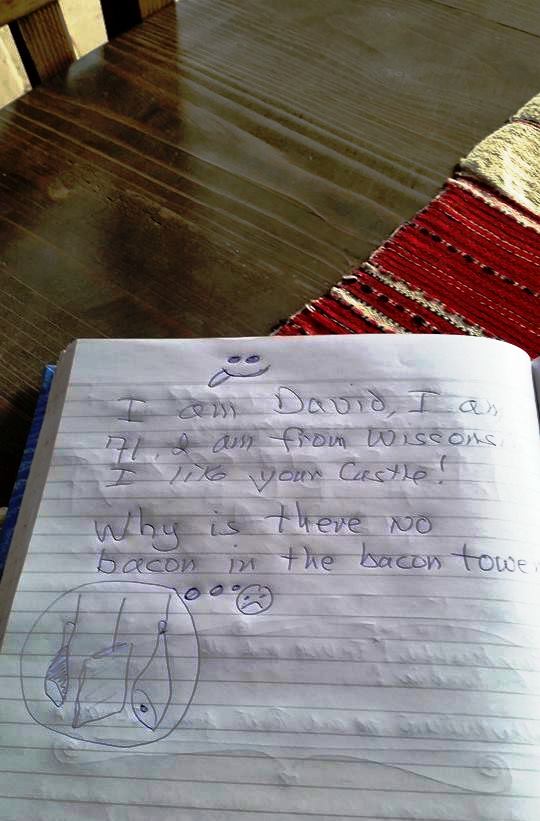 I am David, I am
71. I am from Wiscons
I like your Castle!
Why is there no
bacon in the bacon tower